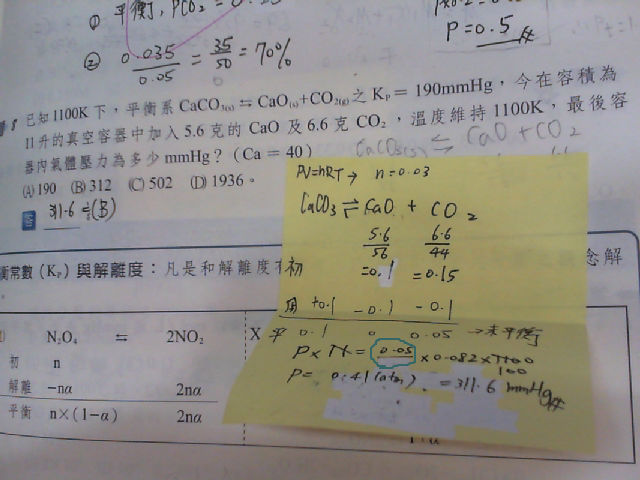 ① 平衡, PCO₂ = 0.25
② 0.035/0.05 = 35/50 = 70%
P = 0.5
8 已知1100K下，平衡系 CaCO₃₍ₛ₎ ⇋ CaO₍ₛ₎+CO₂₍g₎之 Kₚ = 190mmHg，今在容積為
11升的真空容器中加入 5.6 克的 CaO 及 6.6 克 CO₂，溫度維持 1100K，最後容
器內氣體壓力為多少 mmHg？(Ca = 40)
CaCO₃(s) ⇋ CaO + CO₂
(A)190 (B)312 (C)502 (D)1936。
答 311.6 ≒(B)
PV=nRT → n=0.03
CaCO₃ ⇌ CaO + CO₂
5.6/56 6.6/44
初 =0.1 =0.15
用 +0.1 -0.1 -0.1
平 0.1 0 0.05 →未平衡
P×11 = 0.05 ×0.082×1100
100
P= 0.41(atm) = 311.6 mmHg
衡常數(Kₚ)與解離度：凡是和解離度有
念解
N₂O₄ ⇋ 2NO₂
X
初 n
解離 −nα 2nα
平衡 n×(1−α) 2nα
1+α